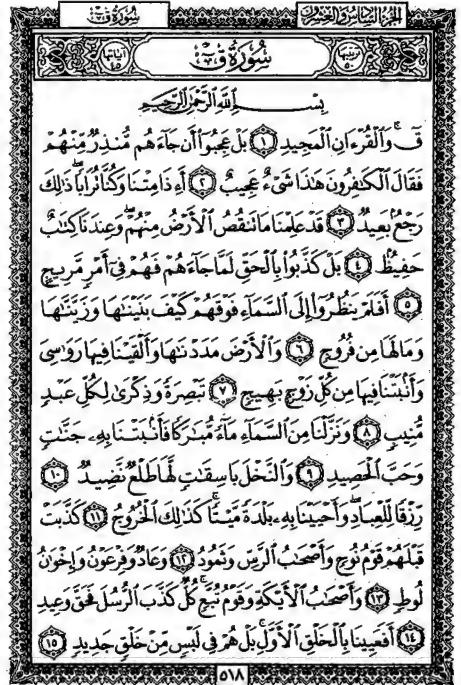 سُورَةُ قٓ الجزء السادس والعشرون
ترتيبها ٥٠ سُورَةُ قٓ آياتها ٤٥
بِسْمِ ٱللَّهِ ٱلرَّحْمَٰنِ ٱلرَّحِيمِ
قٓۚ وَٱلْقُرْءَانِ ٱلْمَجِيدِ ١ بَلْ عَجِبُوٓا۟ أَن جَآءَهُم مُّنذِرٌ مِّنْهُمْ
فَقَالَ ٱلْكَٰفِرُونَ هَٰذَا شَىْءٌ عَجِيبٌ ٢ أَءِذَا مِتْنَا وَكُنَّا تُرَابًاۖ ذَٰلِكَ
رَجْعٌۢ بَعِيدٌ ٣ قَدْ عَلِمْنَا مَا تَنقُصُ ٱلْأَرْضُ مِنْهُمْۖ وَعِندَنَا كِتَٰبٌ
حَفِيظٌۢ ٤ بَلْ كَذَّبُوا۟ بِٱلْحَقِّ لَمَّا جَآءَهُمْ فَهُمْ فِىٓ أَمْرٍ مَّرِيجٍ
٥ أَفَلَمْ يَنظُرُوٓا۟ إِلَى ٱلسَّمَآءِ فَوْقَهُمْ كَيْفَ بَنَيْنَٰهَا وَزَيَّنَّٰهَا
وَمَا لَهَا مِن فُرُوجٍ ٦ وَٱلْأَرْضَ مَدَدْنَٰهَا وَأَلْقَيْنَا فِيهَا رَوَٰسِىَ
وَأَنۢبَتْنَا فِيهَا مِن كُلِّ زَوْجٍۭ بَهِيجٍ ٧ تَبْصِرَةً وَذِكْرَىٰ لِكُلِّ عَبْدٍ
مُّنِيبٍ ٨ وَنَزَّلْنَا مِنَ ٱلسَّمَآءِ مَآءً مُّبَٰرَكًا فَأَنۢبَتْنَا بِهِۦ جَنَّٰتٍ
وَحَبَّ ٱلْحَصِيدِ ٩ وَٱلنَّخْلَ بَاسِقَٰتٍ لَّهَا طَلْعٌ نَّضِيدٌ ١٠
رِّزْقًا لِّلْعِبَادِۖ وَأَحْيَيْنَا بِهِۦ بَلْدَةً مَّيْتًاۚ كَذَٰلِكَ ٱلْخُرُوجُ ١١ كَذَّبَتْ
قَبْلَهُمْ قَوْمُ نُوحٍ وَأَصْحَٰبُ ٱلرَّسِّ وَثَمُودُ ١٢ وَعَادٌ وَفِرْعَوْنُ وَإِخْوَٰنُ
لُوطٍ ١٣ وَأَصْحَٰبُ ٱلْأَيْكَةِ وَقَوْمُ تُبَّعٍۚ كُلٌّ كَذَّبَ ٱلرُّسُلَ فَحَقَّ وَعِيدِ
١٤ أَفَعَيِينَا بِٱلْخَلْقِ ٱلْأَوَّلِۚ بَلْ هُمْ فِى لَبْسٍ مِّنْ خَلْقٍ جَدِيدٍ ١٥
٥١٨